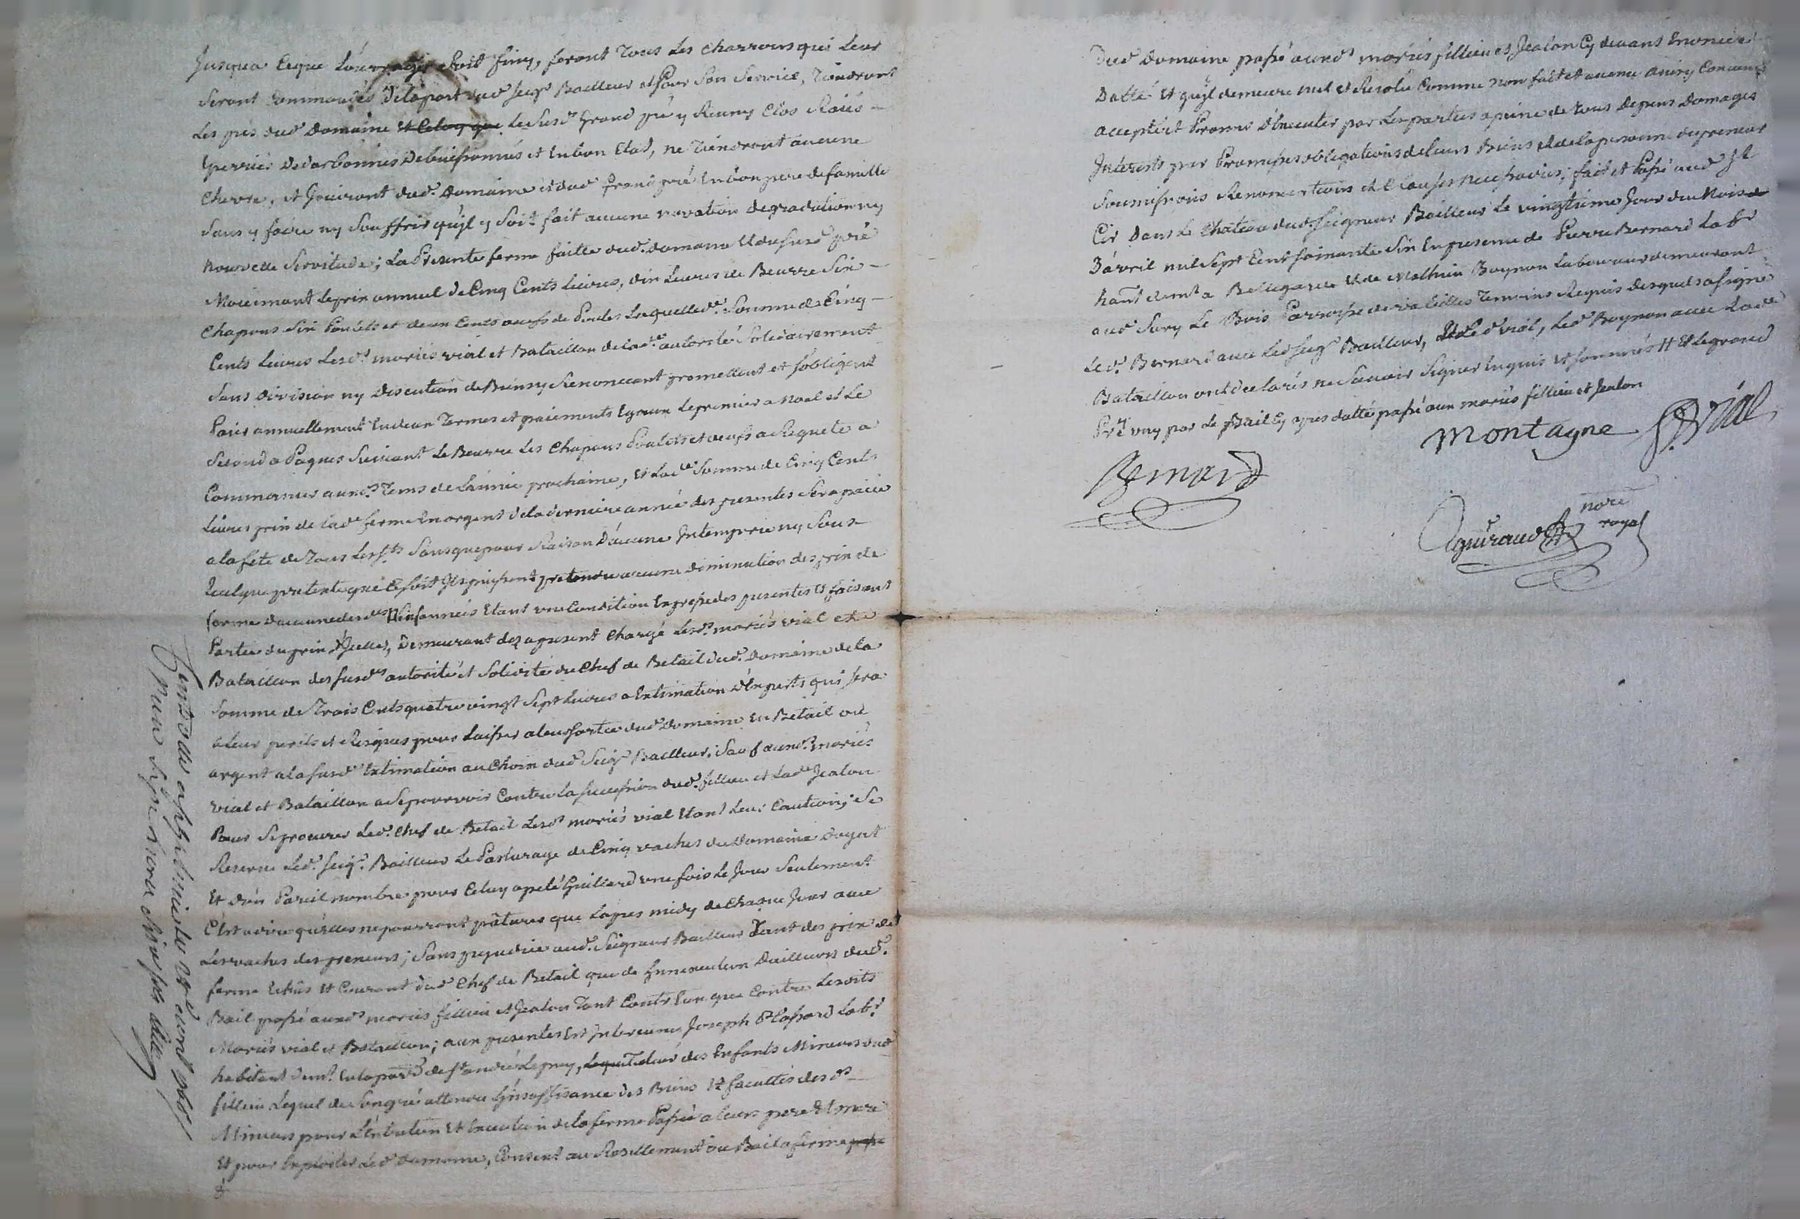 Jusqua Ceque Louvrage soit finy, feront Tous Les Charrois qui Leur
Seront Commandés Delapart dud. seigr. Bailleur et pour Son Service, Tiendront
Les prés dud. Domaine et Celuy que Le Susd. Grand pré y Reuny Clos
De Buissonnés et En bon Etat, ne Tiendront aucune
Chevre, et Jouiront dud. Domaine et dud. grand pré En bon pere de famille
Sans y faire ny Souffrir quil y Soit fait aucune novation Degradation ny
Nouvelle Servitude; La Presente ferme faitte dud. Domaine et du susd. pré
Moiennant Leprix annuel de Cinq Cents Livres, dix Livres de Beurre Six
Chapons Six Poulets et deux Cents oeufs de Poules Laquelle de. Somme de Cinq
Cents Livres Lesd. mariés vial et Bataillon de lad. autorité Solidairement
Sans Division ny Discution de Biens y Renoncant promettent et sobligent
Paier annuellement En deux Termes et paiements Egaux Lepremier a Noel et Le
Second a Paques Suivant Le Beurre Les Chapons Poulets et oeufs a Requete a
Commancer auxd. Tems de Lannée prochaine, Et Lad. Somme de Cinq Cents
Livres prix de Lad. ferme En argent dela derniere année des presentes Sera paiée
a la fete de Tous Les Sts. Sansque pour Raison Daucune Intemperie ny Sous
quelque pretexte que Ce soit Ils puissent pretendre aucune diminution des prix de
ferme Etant une Condition Expresse des presentes Et faisant
Partie du prix Dicelles, Demeurant des apresent Chargé Lesd. mariés vial et
Bataillon des susd. autorité et Solidité du Chef de Betail dud. Domaine de la
Somme de Trois Cents quatre vingt Sept Livres a Estimation D'Experts qui sera
a Leur perils et Risques pour Laisser a leur sortie dud. Domaine En Betail ou
argent a la susd. Estimation au Choix dud. Seigr. Bailleur; Sauf auxd. mariés
vial et Bataillon a Se pourvoir Contre La Succession dud. fillieu et Lad. Jealon
Pour Se procurer Led. Chef de Betail Lesd. mariés vial Etant Leur Caution; Se
Reserve Led. seigr. Bailleur Le Pasturage de Cinq vaches du Domaine
Et D'un Pareil nombre pour Celuy apelé Guillard une fois Le Jour Seulement
C'est a dire quelles ne pourront pâturer que Lapres midy de Chaque Jour avec
Les vaches des preneurs; Sans prejudice aud. Seigneur Bailleur Tant des prix de
ferme Echus Et Courant dud. Chef de Betail que de Inexecution Dailleurs dud.
Bail passé auxd. mariés fillieu et Jealon Tant Contre Eux que Contre Lesdits
Mariés vial et Bataillon; aux presentes Est Intervenu Joseph Labr.
habitant En la parr. de St. andré Le puy, Tuteur des Enfants Mineurs dud.
fillieu Lequel de Son gré attendu Linsoffisance des Biens Et facultés des d.
Mineurs pour Lexecution de la ferme Passée a leurs pere Et mere
Et pour Exploiter Led. Domaine, Consent au Resillement du Bail a ferme passé
dud. Domaine passé auxd. mariés fillieu et Jealon Cy devant Enoncé
Datté Et quil demeure nul et Resolu Comme non fait et avenu Ainsy Convenu
accepté et Promis Executer par Les parties apeine de Tous Depens Domages
Interests par Promesses obligations de leurs Biens et de la personne du preneur
Soumissions Renonciations et Clauses Necessaires; fait et Passé aud. St
Cir Dans Le Chateau dud. Seigneur Bailleur Le vingtieme Jour du Mois
D'avril mil Sept Cent soixante Six En presence de Pierre Bernard Labr.
habt. a Bellegarde Et de Mathieu Boynon Laboureur demeurant
aud. Sury Le Bois Parroisse de Temoins Requis desquels a signé
Led. Bernard avec Led. seigr. Bailleur, Et Led. vial, Led. Boynon avec Lad.
Bataillon ont declarés ne Savoir Signer Enquis et sommés # Et Legrand
Pré uny par Le Bail Cy apres datté passé aux mariés fillieu et Jealon
Montagne P. Vial
Bernard
Aguiraud
nore
royal